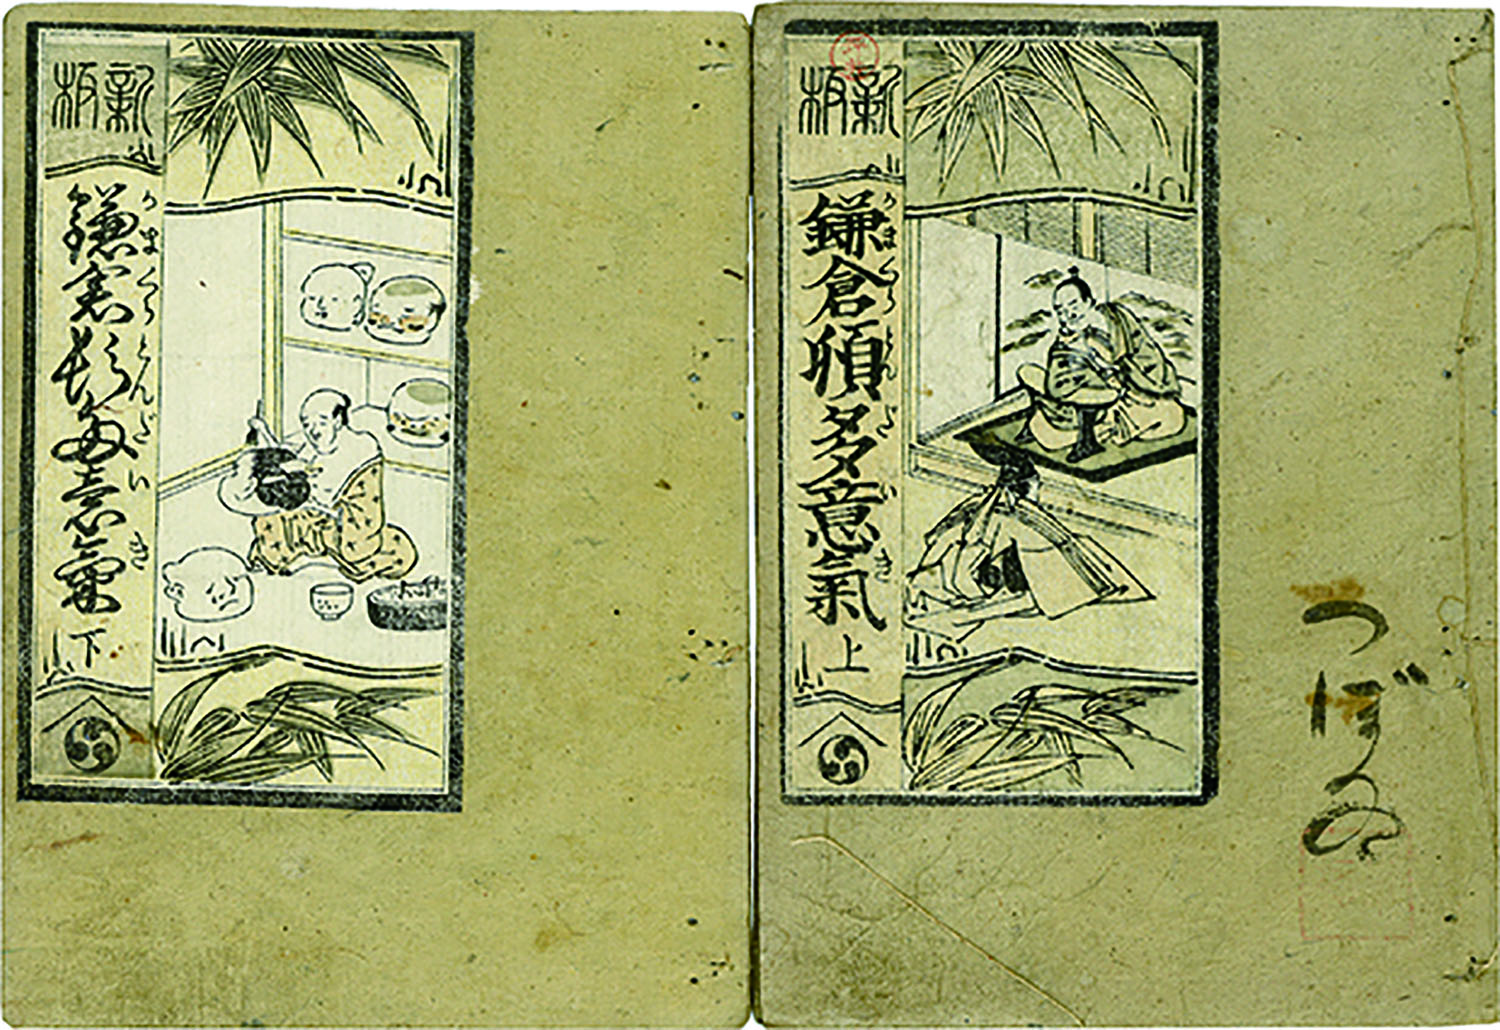 新板
鎌倉頓多意氣 上
かまくらとんだいき
つぼゐ
新板
鎌倉頓多意氣 下
かまくらとんだいき